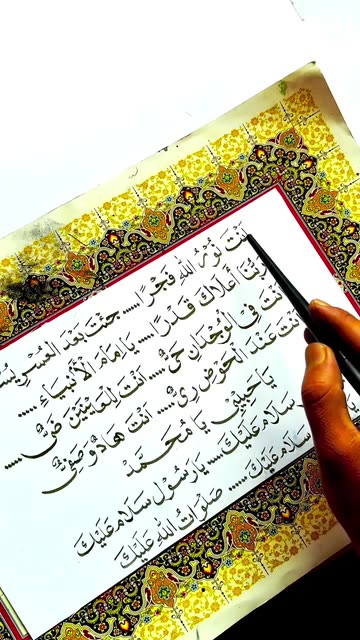 أَنْتَ نُورُ اللهِ فَجْرًا ..... جِئْتَ بَعْدَ الْعُسْرِ يُسْ
رَبُّنَا أَعْلَاكَ قَدْرًا ..... يَا إِمَامَ الْأَنْبِيَاءِ .....
أَنْتَ فِي الْوِجْدَانِ حَيٌّ ..... أَنْتَ لِلْعَيْنَيْنِ ضَيٌّ .....
أَنْتَ عِنْدَ الْحَوْضِ رِيٌّ ..... أَنْتَ هَادٍ وَصَفِيٌّ
يَا حَبِيْبِيْ يَا مُحَمَّدْ
سَلَامْ عَلَيْكَ ..... يَا رَسُوْل سَلَامْ عَلَيْكَ
سَلَامْ عَلَيْكَ ..... صَلَوَاتُ اللهْ عَلَيْكَ